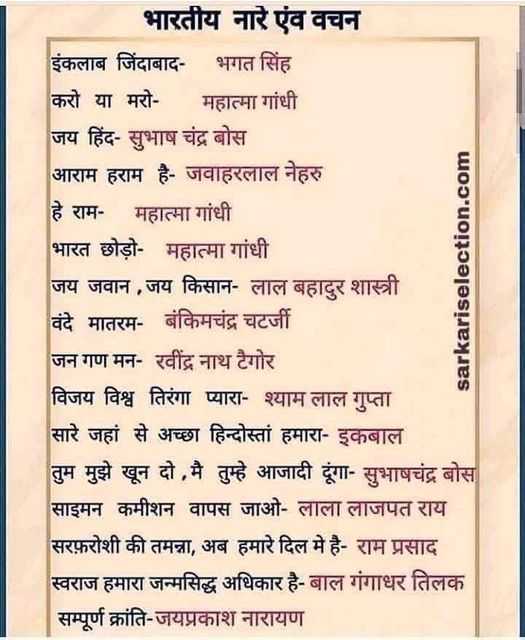 भारतीय नारे एंव वचन
इंकलाब जिंदाबाद- भगत सिंह
करो या मरो- महात्मा गांधी
जय हिंद- सुभाष चंद्र बोस
आराम हराम है- जवाहरलाल नेहरु
हे राम- महात्मा गांधी
भारत छोड़ो- महात्मा गांधी
जय जवान ,जय किसान- लाल बहादुर शास्त्री
वंदे मातरम- बंकिमचंद्र चटर्जी
जन गण मन- रवींद्र नाथ टैगोर
विजय विश्व तिरंगा प्यारा- श्याम लाल गुप्ता
सारे जहां से अच्छा हिन्दोस्तां हमारा- इकबाल
तुम मुझे खून दो ,मै तुम्हे आजादी दूंगा- सुभाषचंद्र बोस
साइमन कमीशन वापस जाओ- लाला लाजपत राय
सरफ़रोशी की तमन्ना, अब हमारे दिल मे है- राम प्रसाद
स्वराज हमारा जन्मसिद्ध अधिकार है- बाल गंगाधर तिलक
सम्पूर्ण क्रांति-जयप्रकाश नारायण
sarkariselection.com